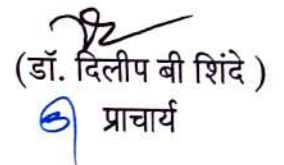 (डॉ. दिलीप बी शिंदे )
प्राचार्य